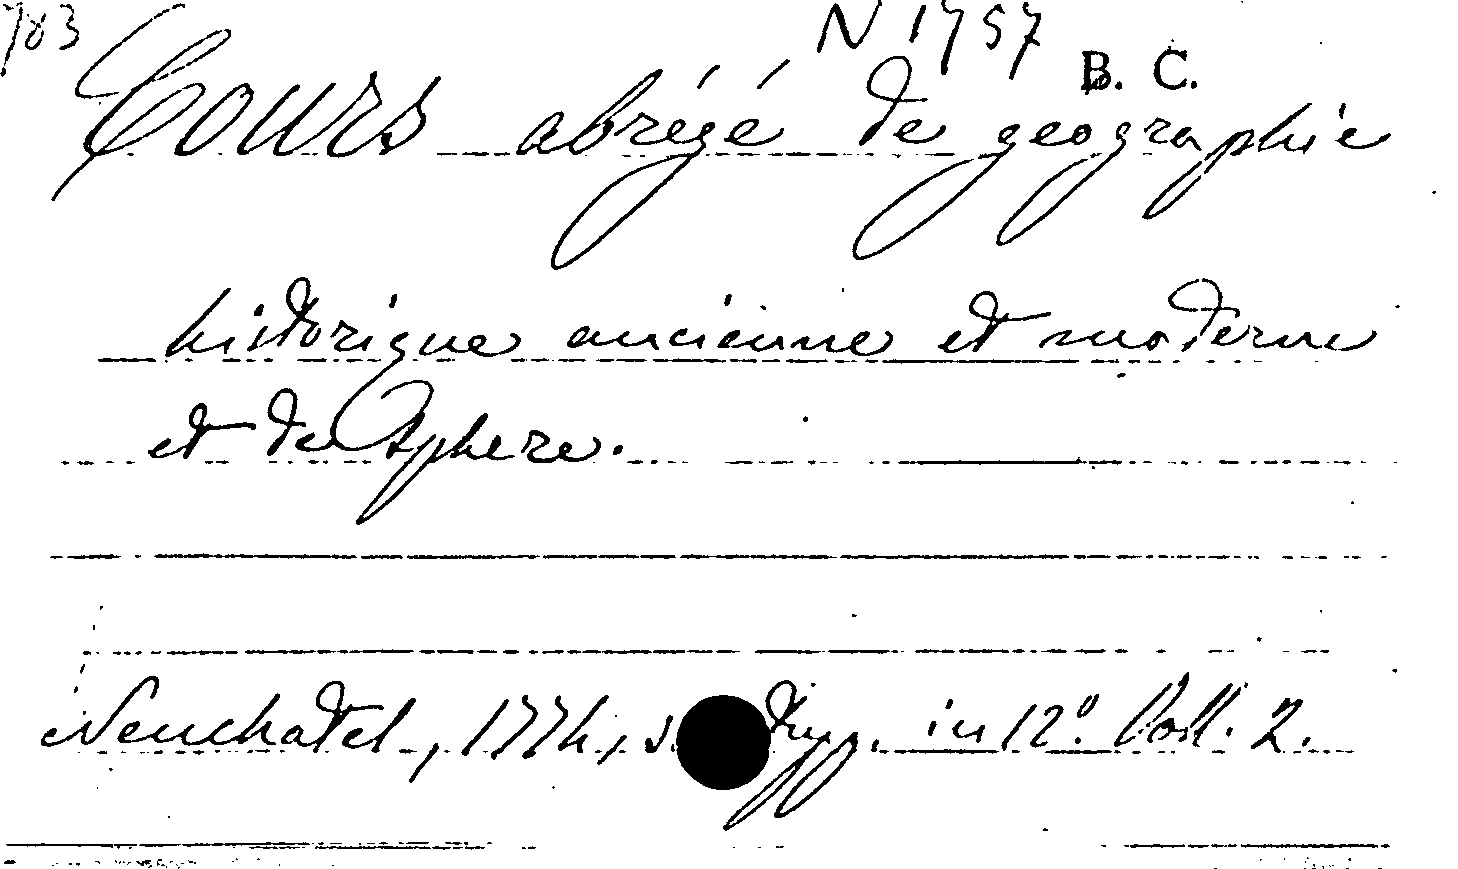 783
N 1757
B. C.
Cours abrégé de geographie
historique ancienne et moderne
et de Sphere.
Neuchatel, 1774, s. typ. in 12º. Voll. 2.